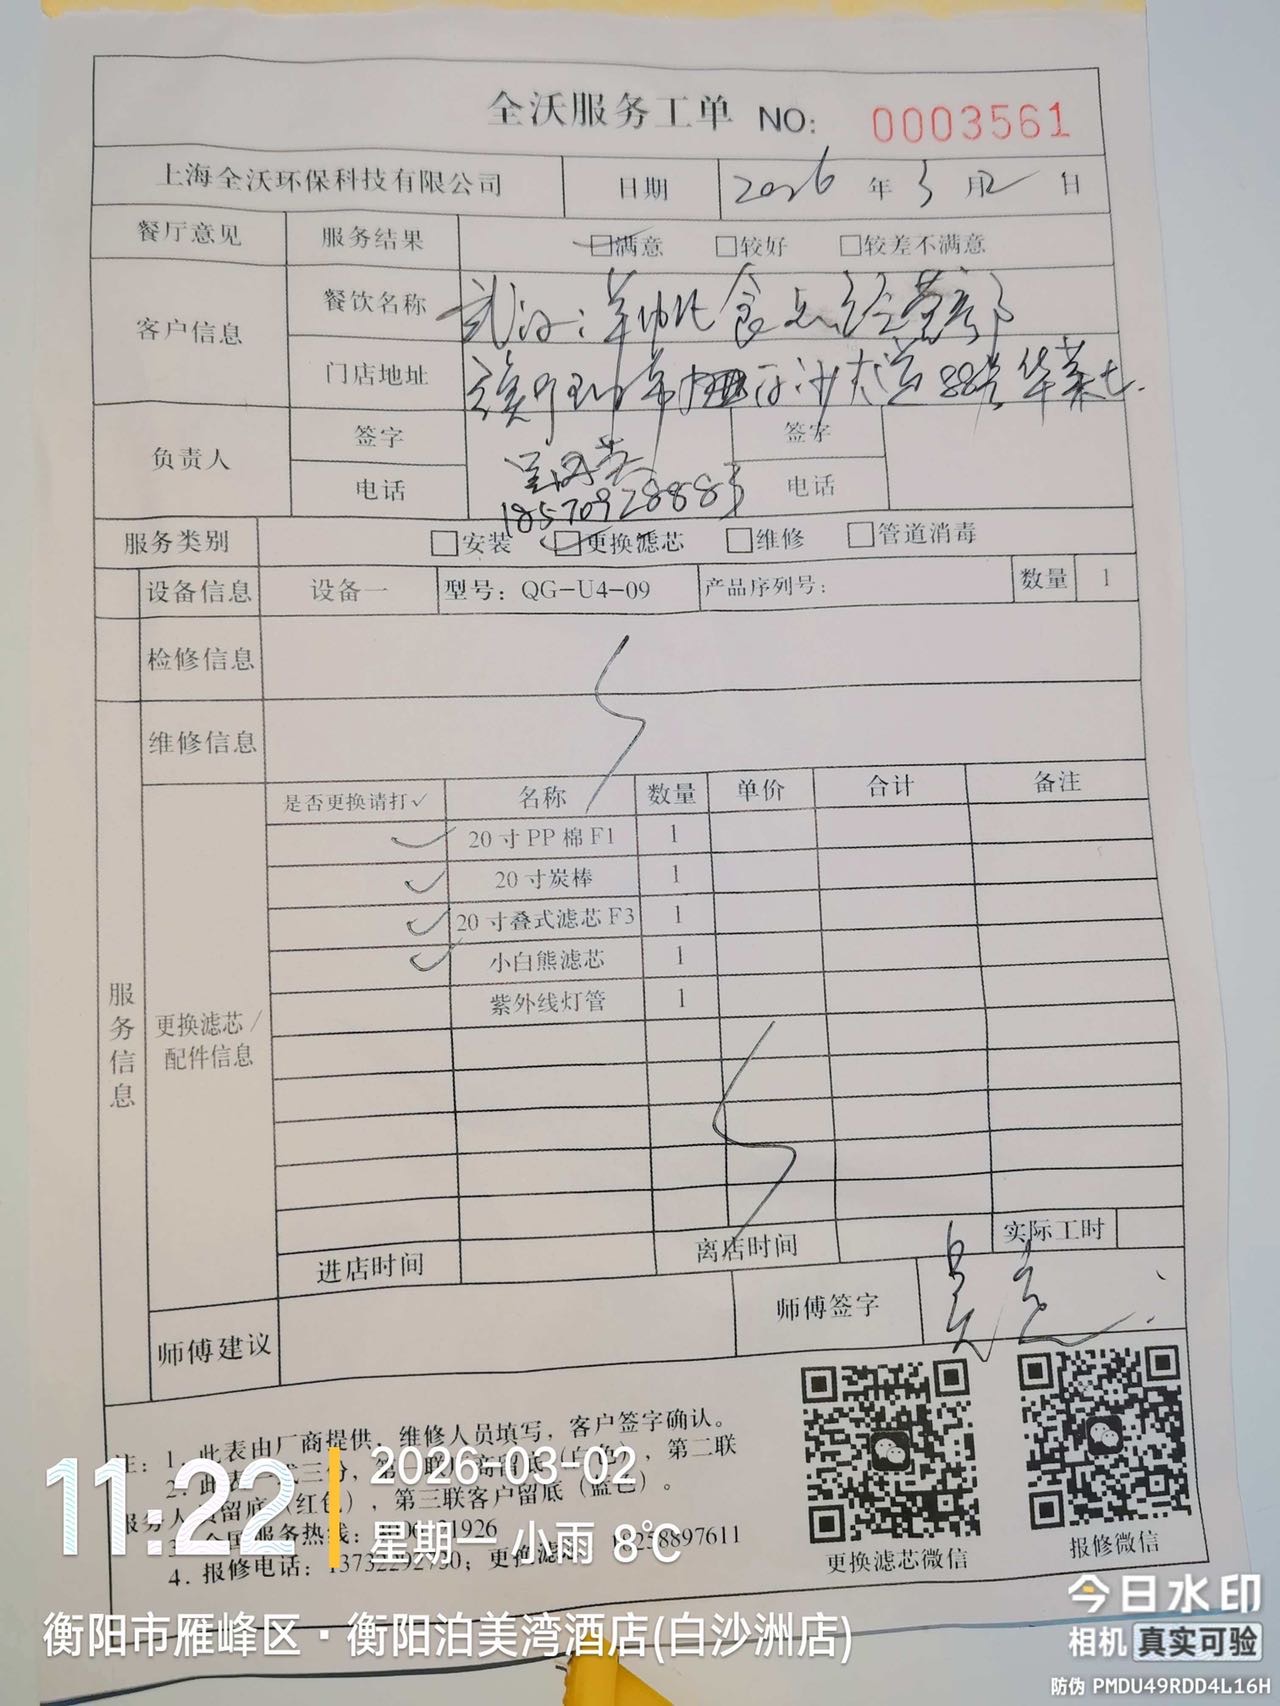 全沃服务工单 NO: 0003561
上海全沃环保科技有限公司 日期 2026 年 3 月 2 日
餐厅意见 服务结果 ☑满意 □较好 □较差不满意
客户信息 餐饮名称 武汉 食品经营部
门店地址 市 白沙大道88号华菜七
负责人 签字 签字
电话 18570928883 电话
服务类别 □安装 ☑更换滤芯 □维修 □管道消毒
设备信息 设备一 型号：QG-U4-09 产品序列号： 数量 1
检修信息
维修信息
服务信息
更换滤芯/配件信息
是否更换请打✓ 名称 数量 单价 合计 备注
✓ 20寸PP棉F1 1
✓ 20寸炭棒 1
✓ 20寸叠式滤芯F3 1
✓ 小白熊滤芯 1
紫外线灯管 1
进店时间 离店时间 实际工时
师傅建议 师傅签字
注：1. 此表由厂商提供，维修人员填写，客户签字确认。
2. 此表 式三份，第 联 商留底（白色），第二联
服务人员留底（红色），第三联客户留底（蓝色）。
3. 全国服务热线： 21926
4. 报修电话：13732292730；更换滤芯 18258897611
更换滤芯微信 报修微信
11:22 2026-03-02
星期一 小雨 8℃
衡阳市雁峰区·衡阳泊美湾酒店(白沙洲店)
今日水印
相机 真实可验
防伪 PMDU49RDD4L16H